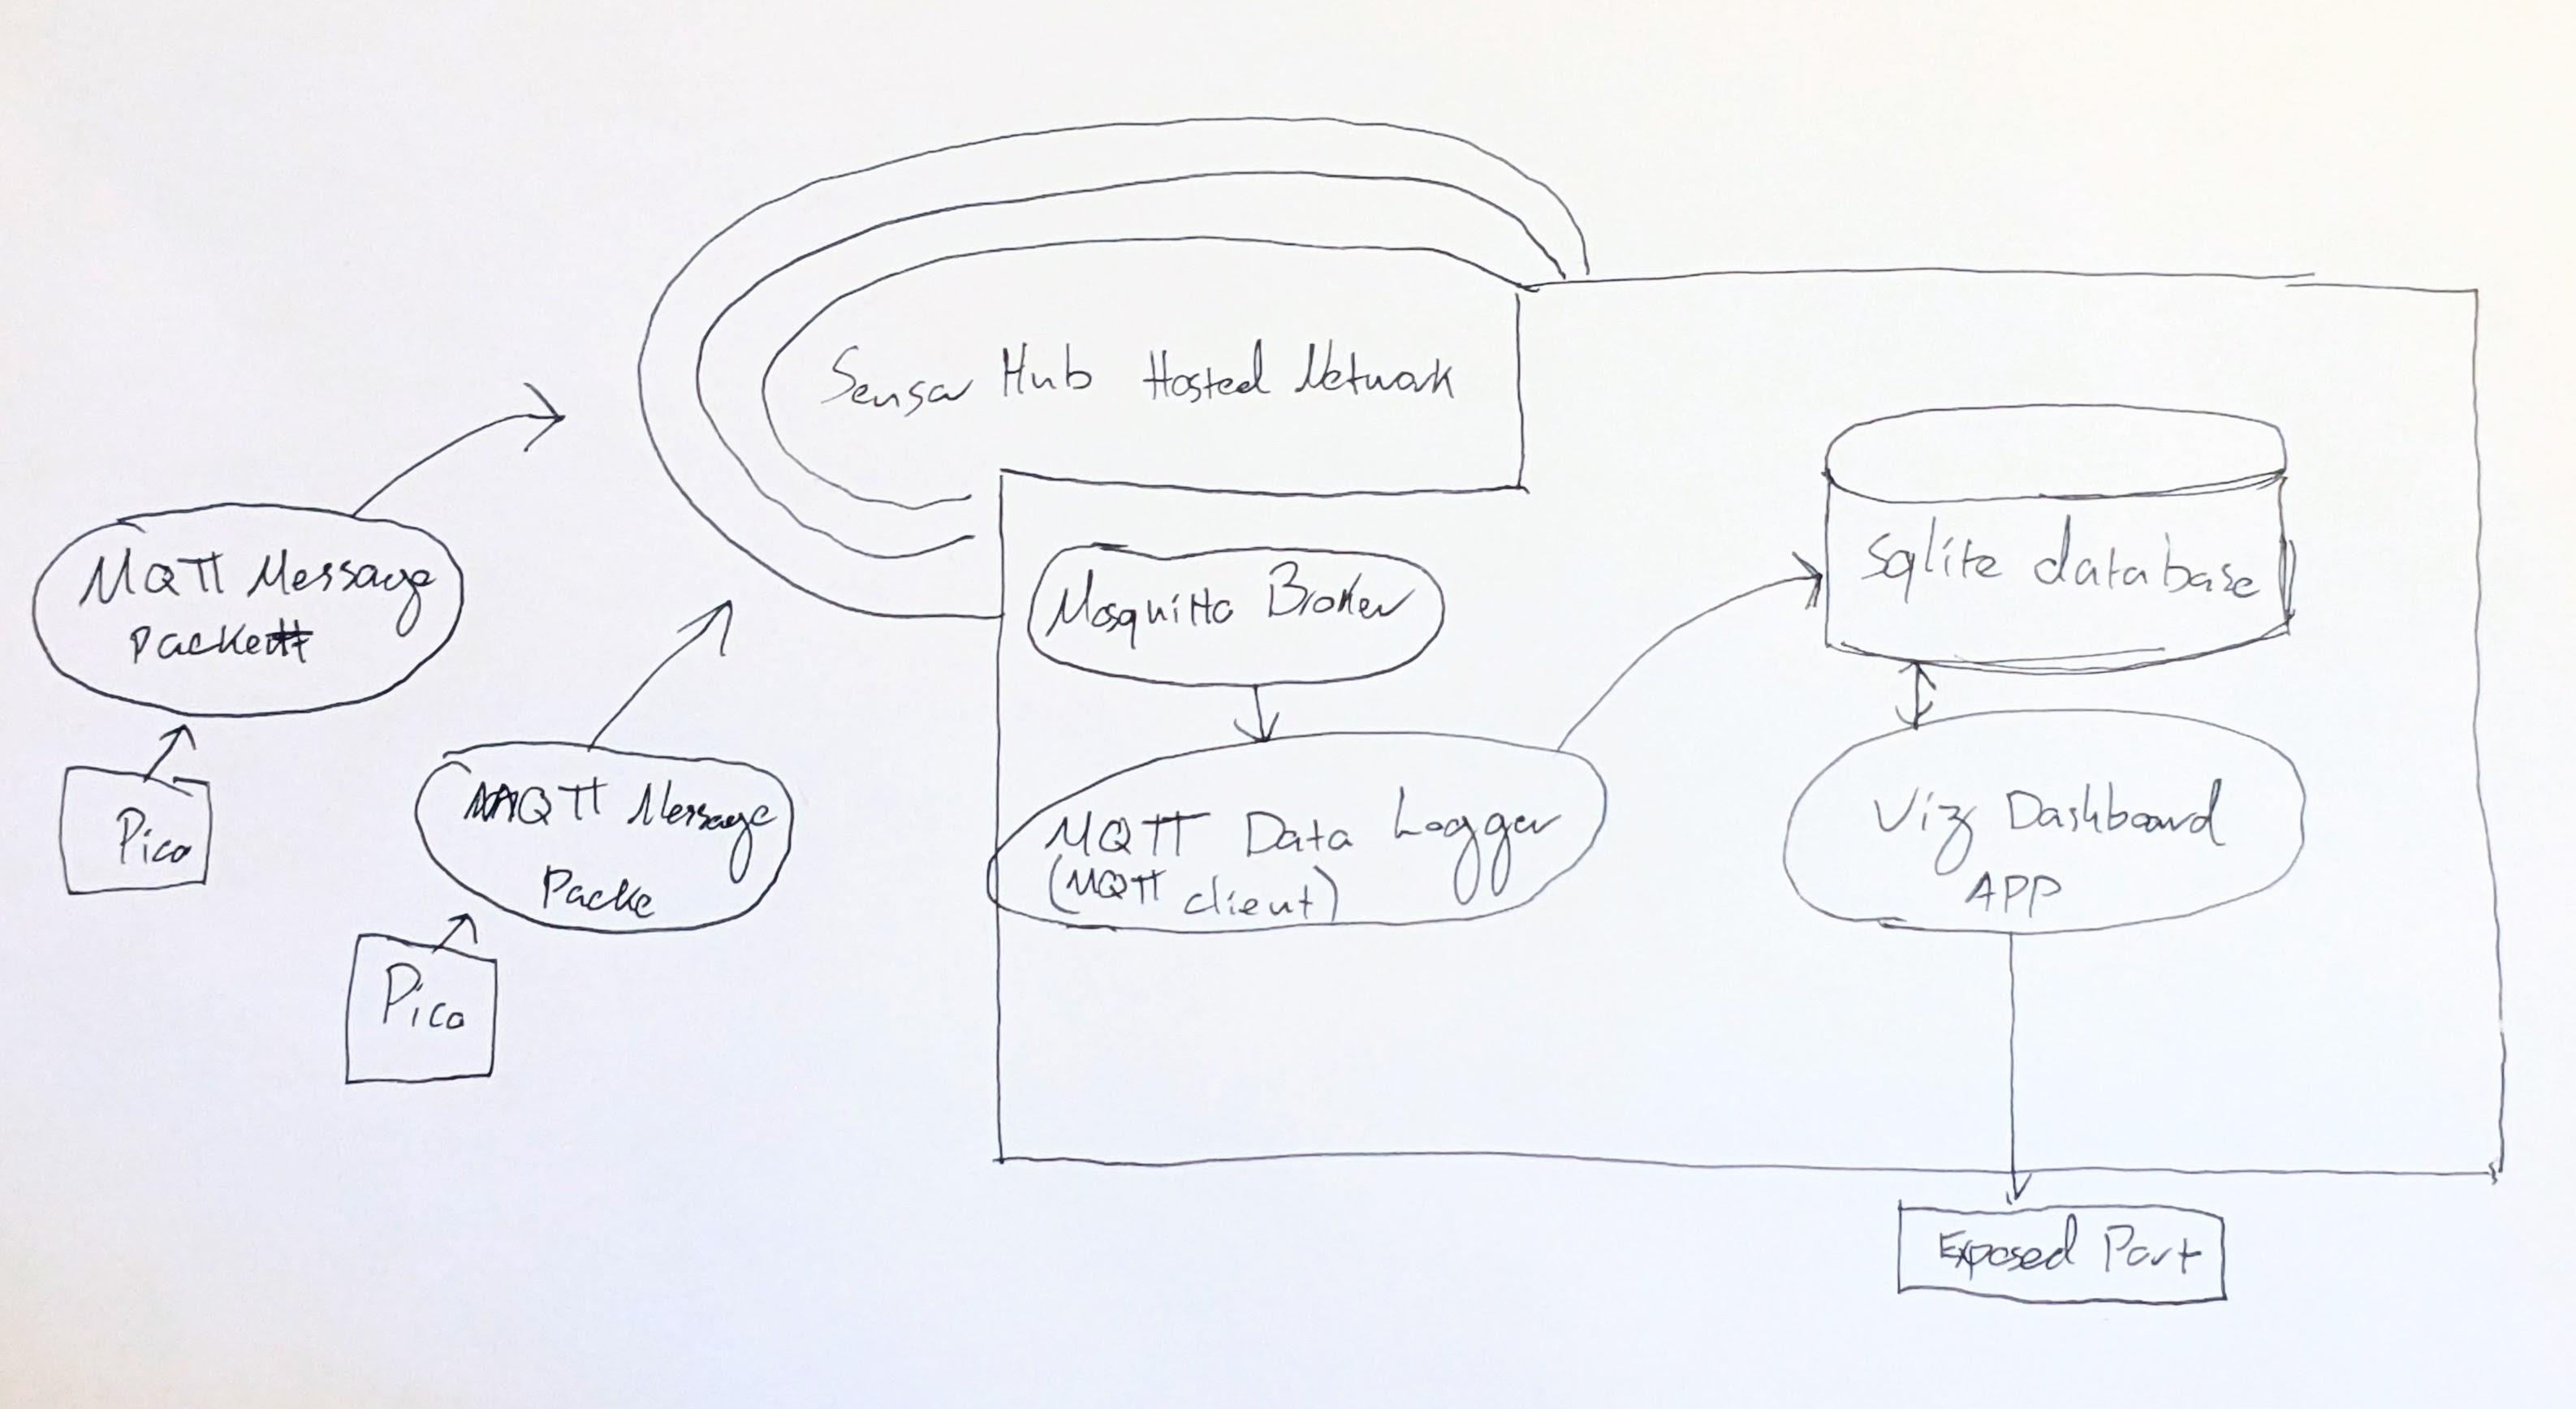 Sensor Hub Hosted Network
MQTT Message
Packett
Pico
MQTT Message
Packe
Pico
Mosquitto Broker
MQTT Data Logger
(MQTT client)
Sqlite database
Viz Dashboard
APP
Exposed Port